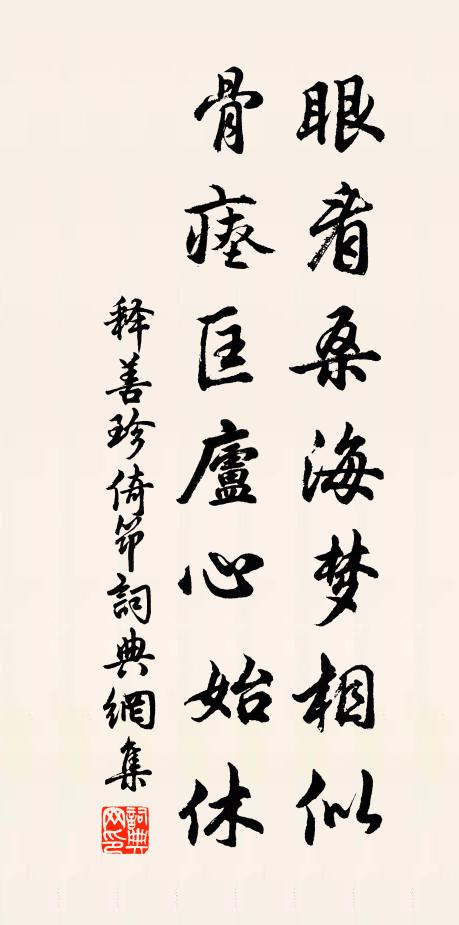 眼看桑海梦相似
骨瘗匡廬心始休
释善珍倚筇詞典網集
詞典
网印